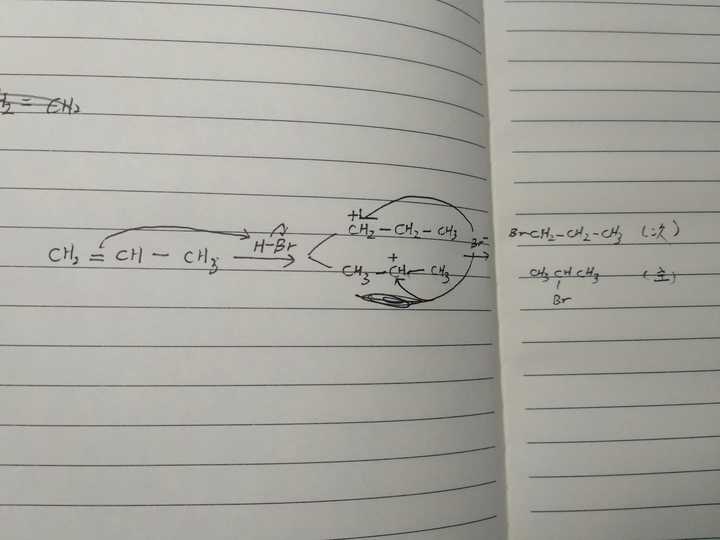 H₂ = CH₂
CH₂ = CH — CH₃
H-Br
+
CH₂ — CH₂ — CH₃
+
CH₃ — CH — CH₃
Br⁻
BrCH₂-CH₂-CH₃ (次)
CH₃ CH CH₃ (主)
Br